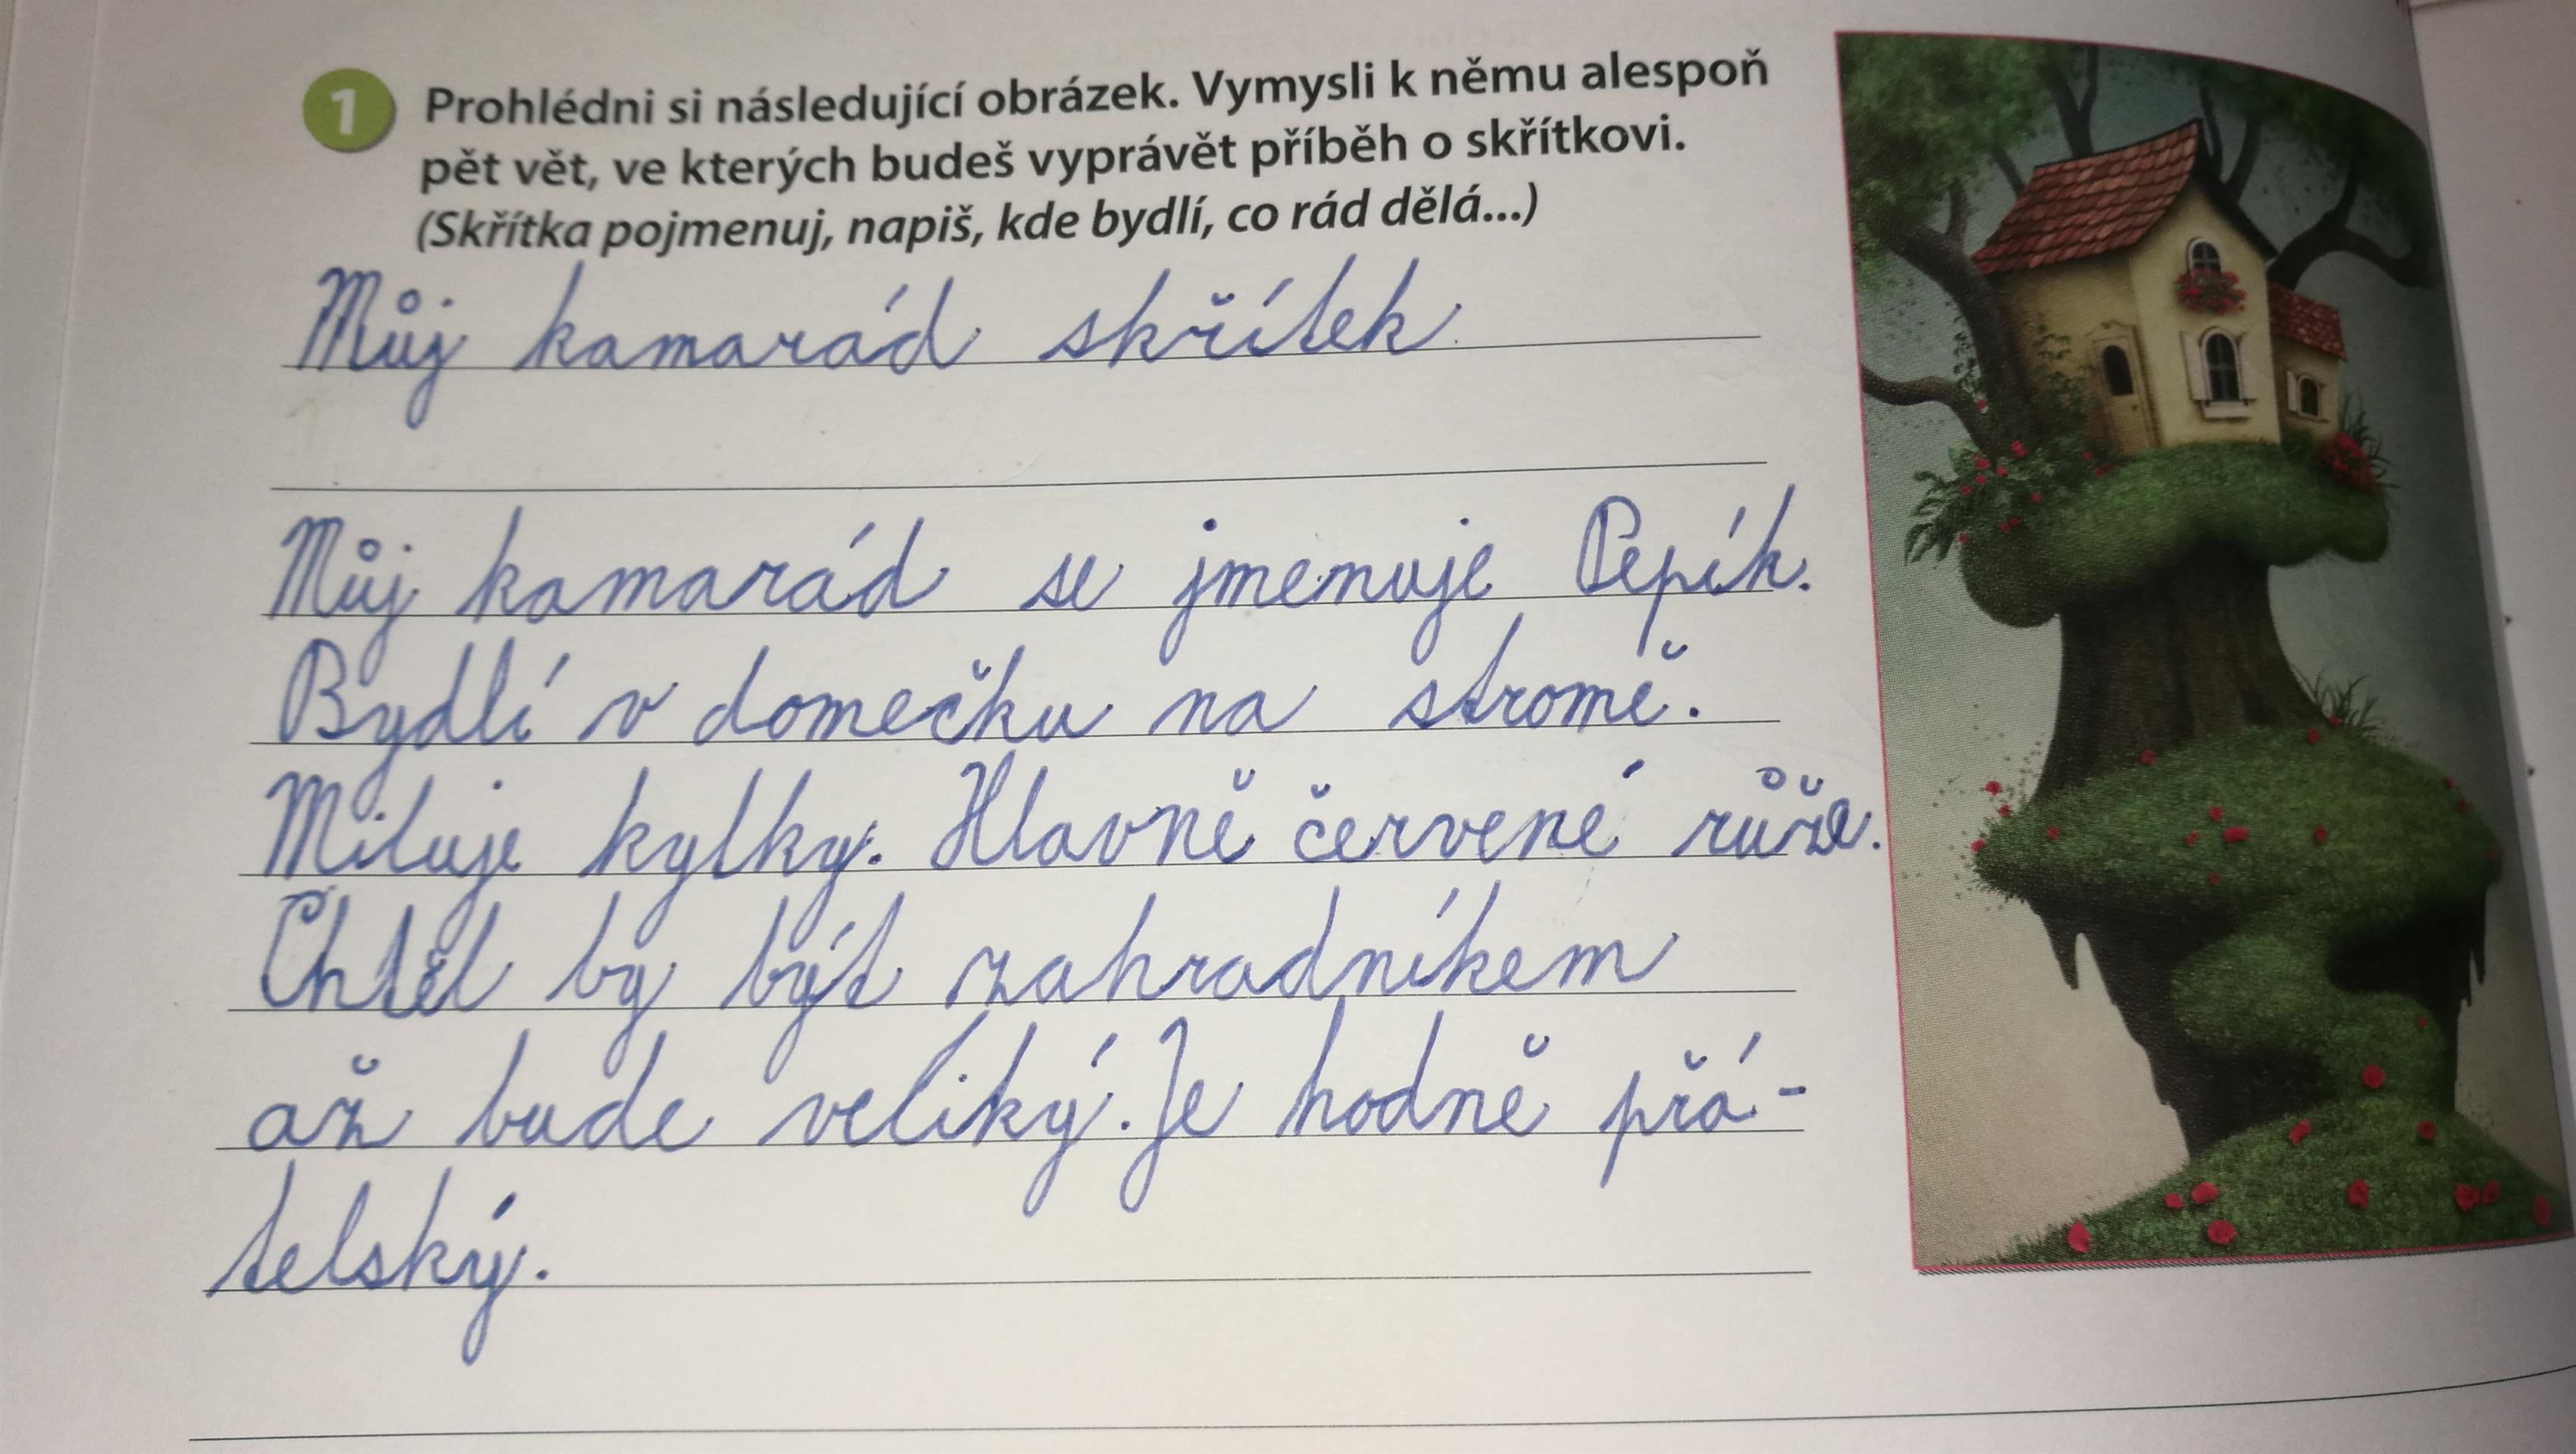 1 Prohlédni si následující obrázek. Vymysli k němu alespoň
pět vět, ve kterých budeš vyprávět příběh o skřítkovi.
(Skřítka pojmenuj, napiš, kde bydlí, co rád dělá...)
Můj kamarád skřítek
Můj kamarád se jmenuje Pepík.
Bydlí v domečku na stromě.
Miluje kylky. Hlavně červené růže.
Chtěl by být zahradníkem
až bude veliký. Je hodně přá-
telský.